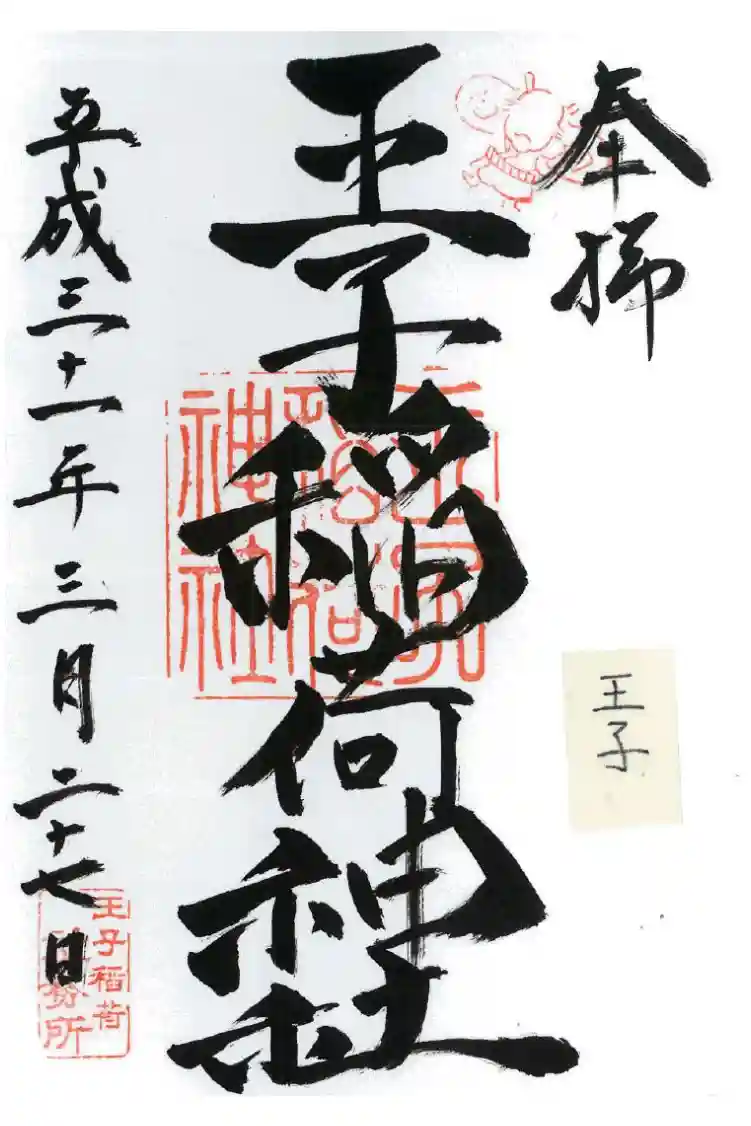 奉拝
王子
王子稲荷神社
王子稲荷神社
平成三十一年三月二十七日
王子稲荷
社務所